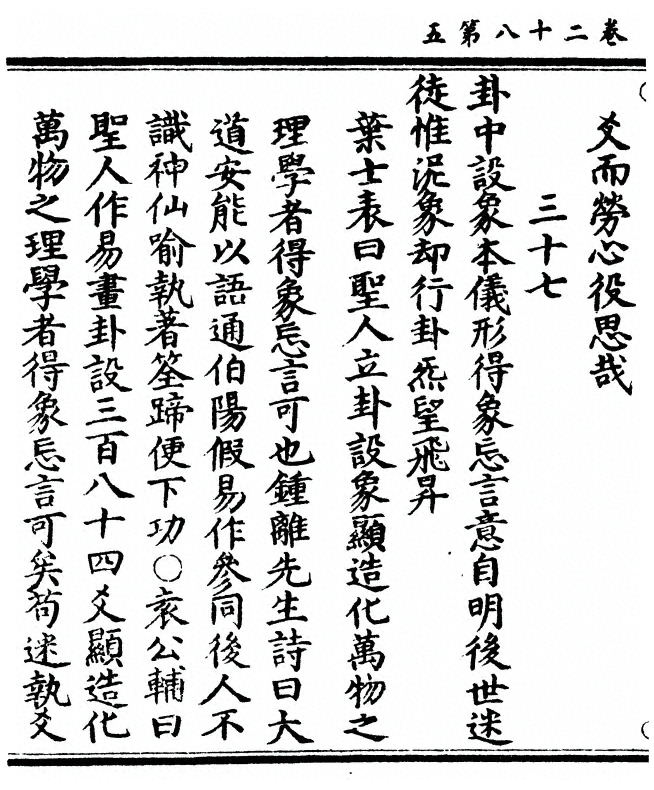 卷二十八第五
爻而勞心役思哉
三十七
卦中設象本儀形得象忘言意自明後世迷
徒惟泥象却行卦炁望飛昇
葉士表曰聖人立卦設象顯造化萬物之
理學者得象忘言可也鍾離先生詩曰大
道安能以語通伯陽假易作參同後人不
識神仙喻執著筌蹄便下功○袁公輔曰
聖人作易畫卦設三百八十四爻顯造化
萬物之理學者得象忘言可矣苟迷執爻